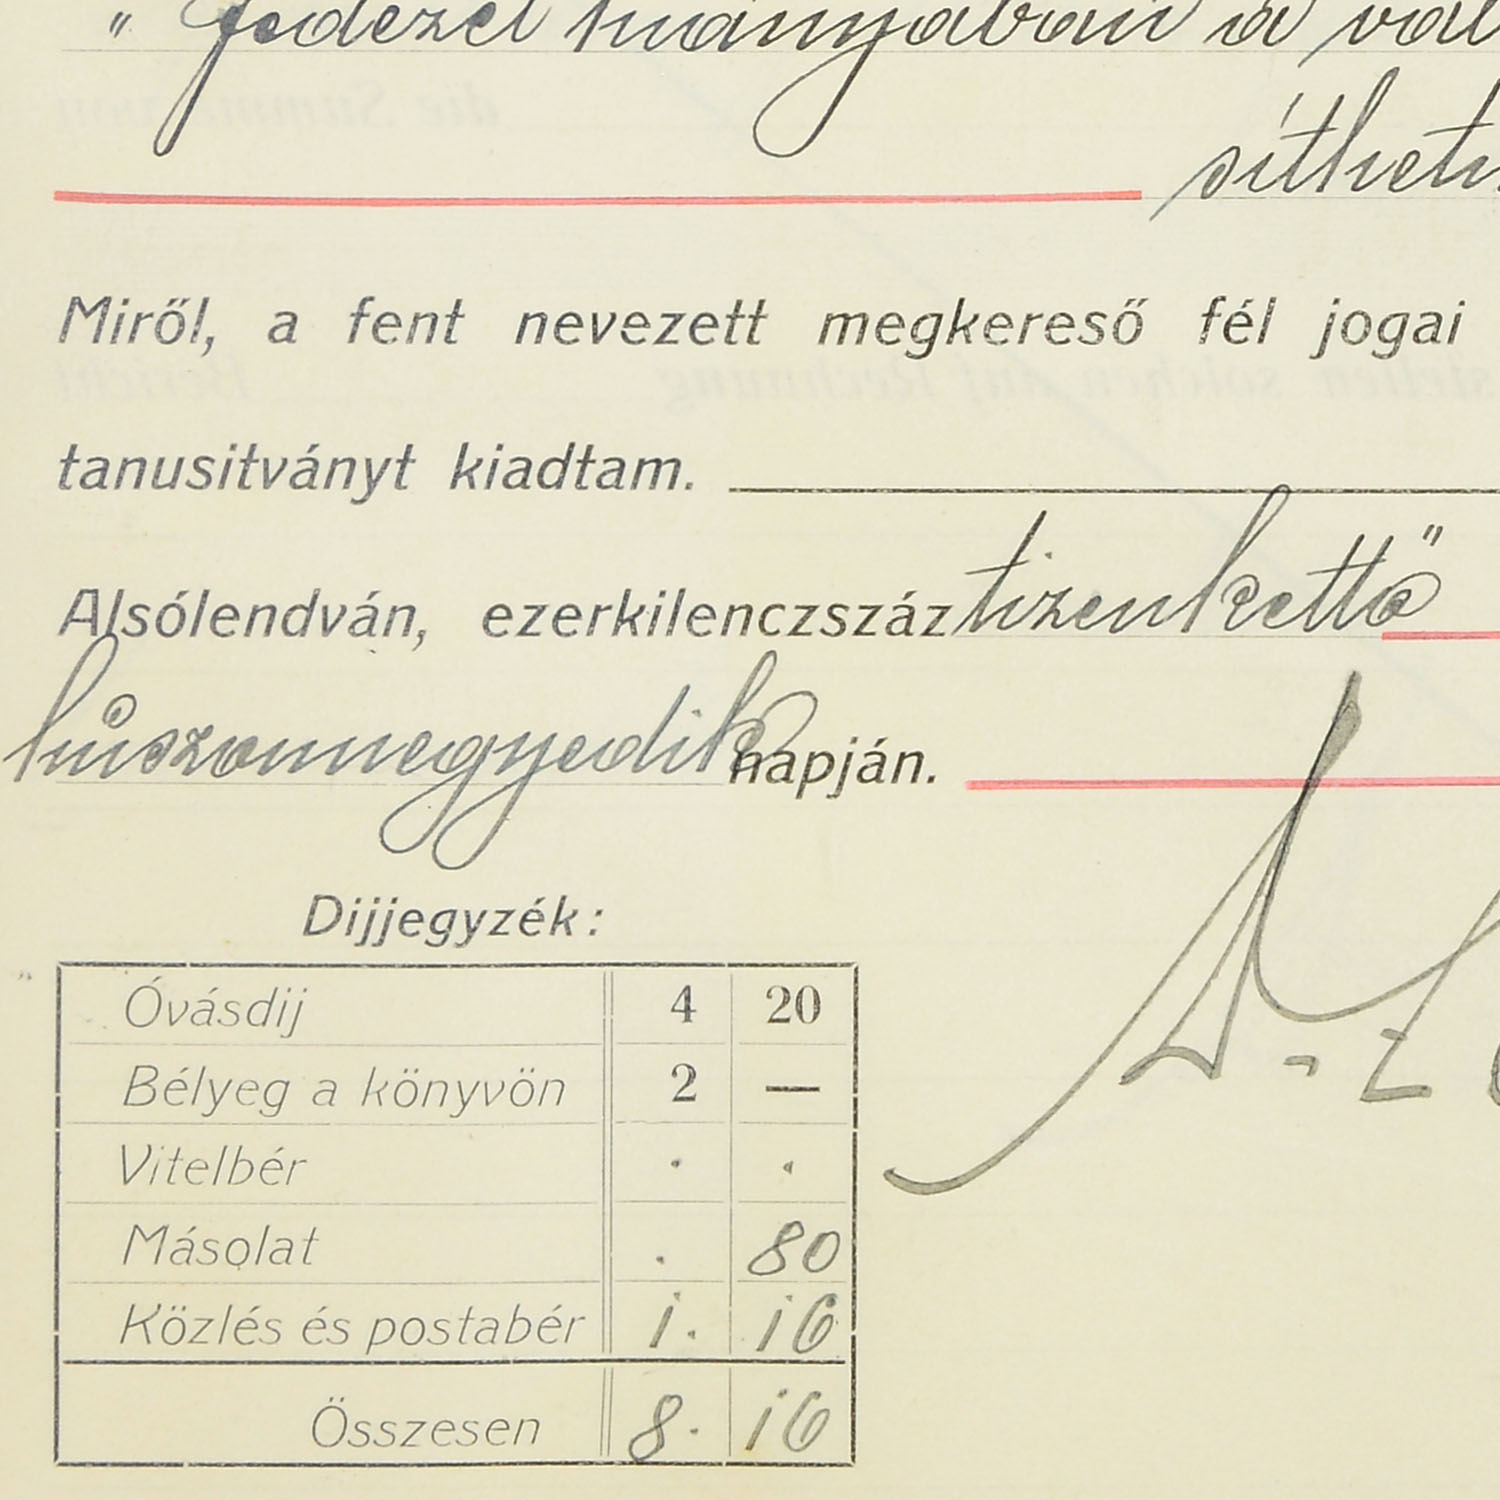 " fedezet hiányában a vál
síthet
Miről, a fent nevezett megkereső fél jogai
tanusitványt kiadtam.
Alsólendván, ezerkilenczszáz tizenkettő
húszonnegyedik napján.
Dijjegyzék:
Óvásdij 4 20
Bélyeg a könyvön 2 —
Vitelbér . .
Másolat . 80
Közlés és postabér 1. 16
Összesen 8. 16